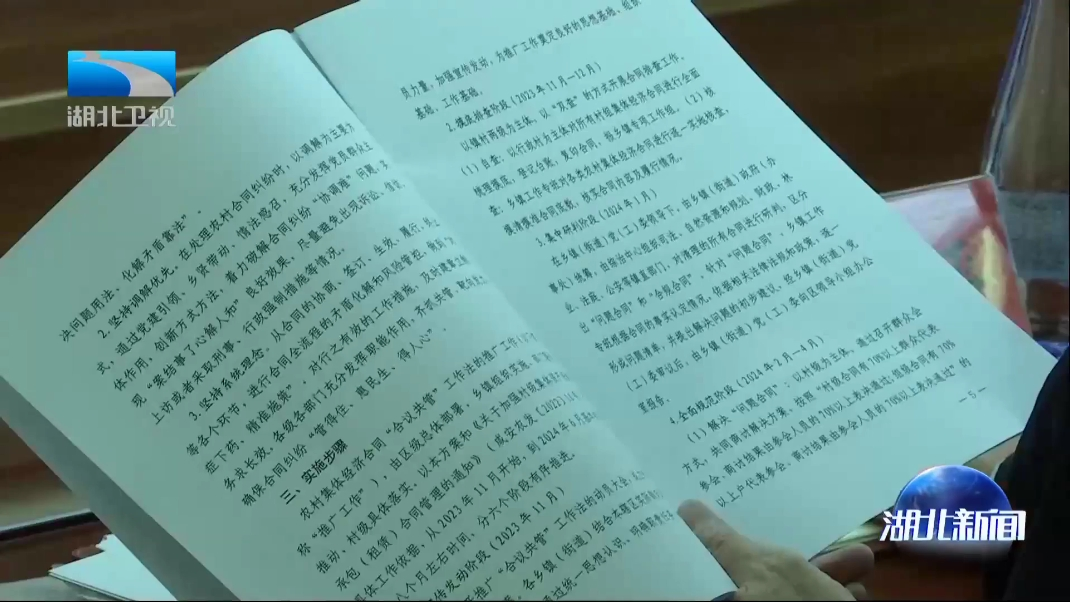 湖北卫视
决问题用法、化解矛盾靠法”。
2.坚持调解优先。在处理农村合同纠纷时，以调解为主要方
式，通过党建引领、乡贤带动、情法感召，充分发挥党员群众主
体作用，创新方式方法，着力破解合同纠纷“协调难”问题，
现“案结事了心解人和”良好效果，尽量避免出现诉讼、信
上访或者采取刑事、行政强制措施等情况。
3.坚持系统理念。从合同的协商、签订、生效、履行、
等各个环节，进行合同全流程的矛盾化解和风险管控，
症下药、精准施策”，对行之有效的工作措施，及时
务求长效。各级各部门充分发挥职能作用，齐抓共管、
确保合同纠纷“管得住、惠民生、得人心”。
三、实施步骤
农村集体经济合同“合议共管”工作法的推广工作（
称“推广工作”），由区级总体部署，乡镇组织实施，
推动、村级具体落实，以本方案和《关于加强村级集体
承包（租赁）合同管理的通知》（咸安农发〔2023〕
具体工作依据，从2023年11月开始，到2024年6月
八个月左右时间，分六个阶段有序推进。
传发动阶段（2023年11月）
推广“合议共管”工作法的动员大会，
各乡镇（街道）综合本辖区
过统一思想认识，明确
员力量，加强宣传发动，为推广工作奠定良好的思想基础、组织
基础、工作基础。
2.摸底排查阶段（2023年11月—12月）
以镇村两级为主体，以“双查”的方式开展合同排查工作。
（1）自查：以行政村为主体对所有村组集体经济合同进行全面
梳理摸底，登记台账，复印合同，报乡镇专项工作组。（2）核
查：乡镇工作专班对各类农村集体经济合同进行逐一实地核查，
摸清摸准合同底数，核实合同内容及履行情况。
3.集中研判阶段（2024年1月）
在乡镇（街道）党（工）委领导下，由乡镇（街道）政府（办
事处）统筹，由综治中心组织司法、自然资源和规划、财政、林
业、法院、公安等镇直部门，对清理的所有合同进行研判，区分
出“问题合同”和“合规合同”。针对“问题合同”，乡镇工作
专班根据合同的事实认定情况，依据相关法律法规和政策，逐一
形成问题清单，并提出解决问题的初步建议，经乡镇（街道）党
（工）委审议后，由乡镇（街道）党（工）委向区领导小组办公
室报备。
4.全面规范阶段（2024年2月—4月）
（1）解决“问题合同”：以村级为主体，通过召开群众会
方式，共同商讨解决方案，按照“村级合同有70%以上群众代表
参会、商讨结果由参会人员的70%以上表决通过；组级合同有70%
以上户代表参会、商讨结果由参会人员的70%以上表决通过”的
— 5 —
湖北新闻